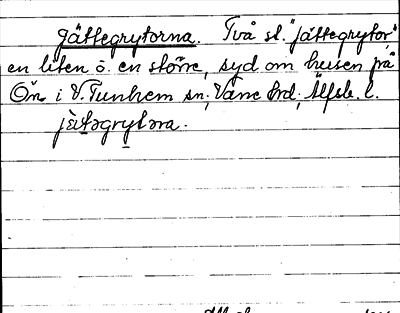 Jättegrytorna. Två sl. "jättegrytor",
en liten o. en större, syd. om husen på
Ön i V. Tunhem sn, Väne hrd, Älfsb. l.
jätəgrytəra.